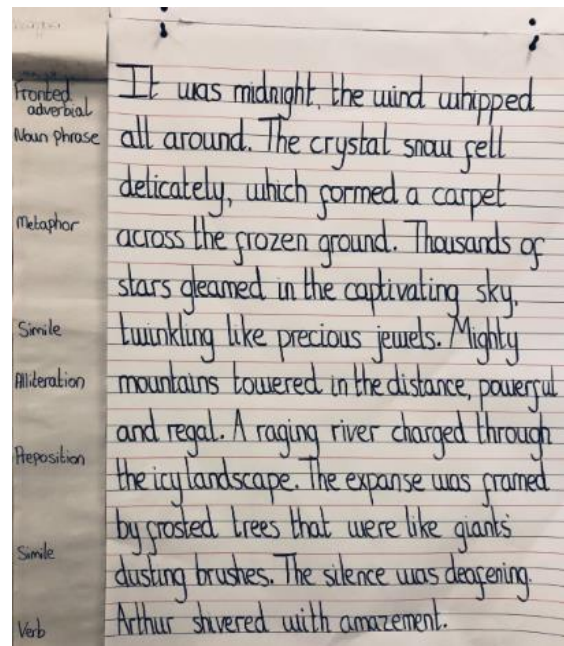 Fronted
adverbial
Noun phrase
Metaphor
Simile
Alliteration
Preposition
Simile
Verb
It was midnight, the wind whipped
all around. The crystal snow fell
delicately, which formed a carpet
across the frozen ground. Thousands of
stars gleamed in the captivating sky,
twinkling like precious jewels. Mighty
mountains towered in the distance, powerful
and regal. A raging river charged through
the icy landscape. The expanse was framed
by frosted trees that were like giants'
dusting brushes. The silence was deafening.
Arthur shivered with amazement.